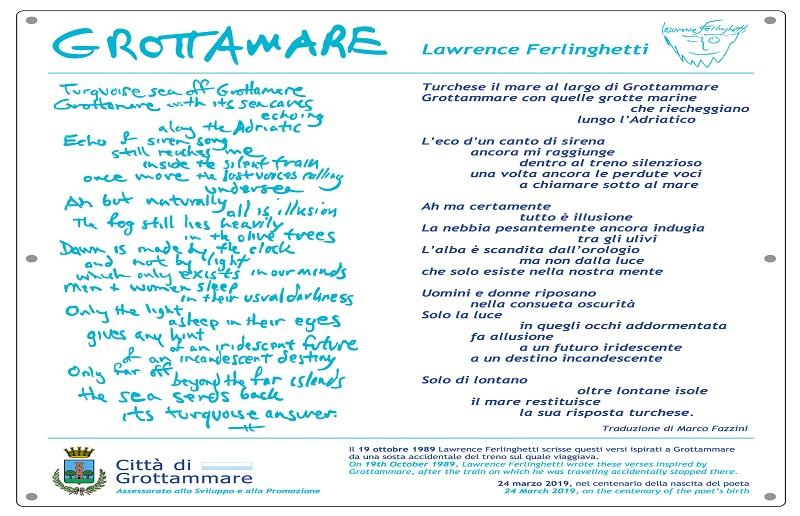 GROTTAMARE
Lawrence Ferlinghetti
Lawrence Ferlinghetti
Turquoise sea off Grottamare
Grottamare with its sea caves
echoing
along the Adriatic
Echo of siren song
still reaches me
inside the silent train
once more the lost voices calling
undersea
Ah but naturally
all is illusion
The fog still lies heavily
in the olive trees
Dawn is made by the clock
and not by light
which only exists in our minds
Men + women sleep
in their usual darkness
Only the light
asleep in their eyes
gives any hint
of an iridescent future
of an incandescent destiny
Only far off
beyond the far islands
the sea sends back
its turquoise answer.
Turchese il mare al largo di Grottammare
Grottammare con quelle grotte marine
che riecheggiano
lungo l'Adriatico
L'eco d'un canto di sirena
ancora mi raggiunge
dentro al treno silenzioso
una volta ancora le perdute voci
a chiamare sotto al mare
Ah ma certamente
tutto è illusione
La nebbia pesantemente ancora indugia
tra gli ulivi
L'alba è scandita dall'orologio
ma non dalla luce
che solo esiste nella nostra mente
Uomini e donne riposano
nella consueta oscurità
Solo la luce
in quegli occhi addormentata
fa allusione
a un futuro iridescente
a un destino incandescente
Solo di lontano
oltre lontane isole
il mare restituisce
la sua risposta turchese.
Traduzione di Marco Fazzini
Città di
Grottammare
Assessorato allo Sviluppo e alla Promozione
Il 19 ottobre 1989 Lawrence Ferlinghetti scrisse questi versi ispirati a Grottammare
da una sosta accidentale del treno sul quale viaggiava.
On 19th October 1989, Lawrence Ferlinghetti wrote these verses inspired by
Grottammare, after the train on which he was traveling accidentally stopped there.
24 marzo 2019, nel centenario della nascita del poeta
24 March 2019, on the centenary of the poet's birth